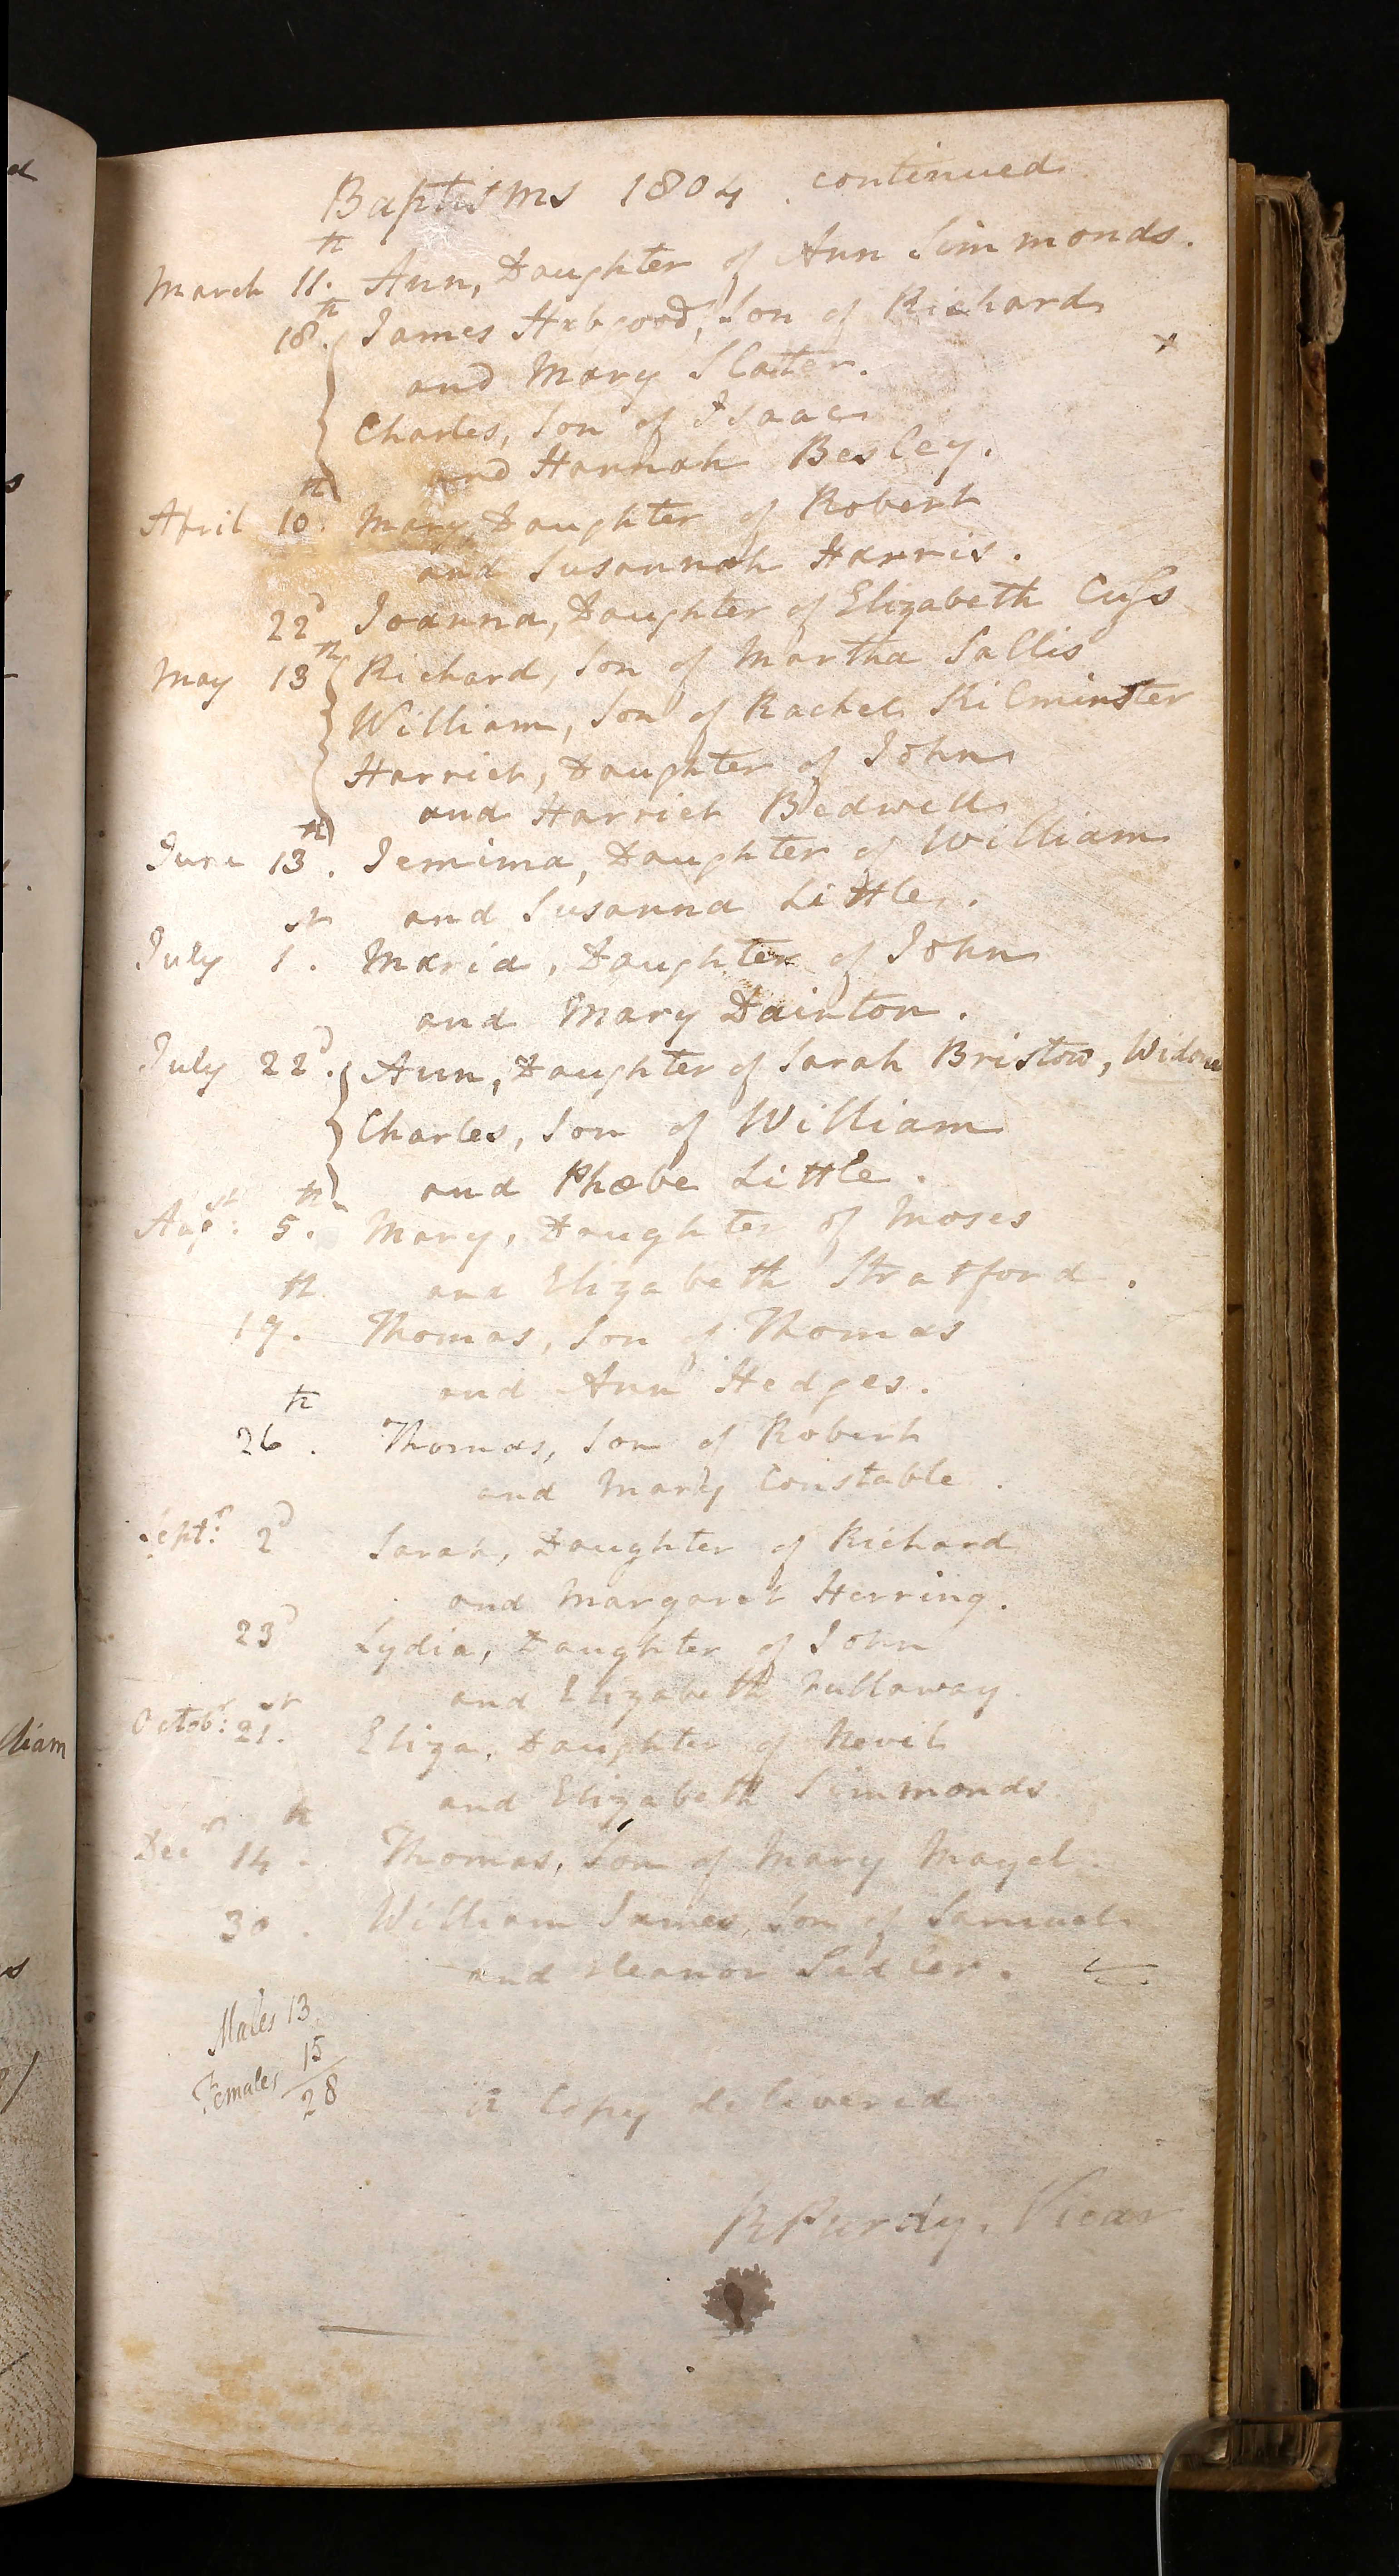 Baptisms 1804. continued
March 11.th Ann, Daughter of Ann Simmonds.
18.th James Habgood, Son of Richard
and Mary Slatter.
Charles, Son of Isaac
and Hannah Besley.
April 10.th Mary, Daughter of Robert
and Susannah Harris.
22d Joanna, Daughter of Elizabeth Cuſs
May 13th Richard, Son of Martha Sallis
William, Son of Rachel Kilminster
Harriet, Daughter of John
and Harriet Bedwell
June 13th. Jemima, Daughter of William
and Susanna Little.
July 1st. Maria, Daughter of John
and Mary Dainton.
July 22d. Ann, Daughter of Sarah Bristow, Widow
Charles, Son of William
and Phœbe Little.
Augst: 5th. Mary, Daughter of Moses
and Elizabeth Stratford.
19th. Thomas, Son of Thomas
and Ann Hedges.
26th. Thomas, Son of Robert
and Mary Constable.
Septr: 2d Sarah, Daughter of Richard
and Margaret Herring.
23d Lydia, Daughter of John
and Elizabeth
Octobr: 21st. Eliza, Daughter of Nevil
and Elizabeth Simmonds
Decr 14th. Thomas, Son of Mary
30. William James, Son of Samuel
and Eleanor Sadler.
Males 13
Females 15
28
a Copy delivered
R Purdy. Vicar
lliam